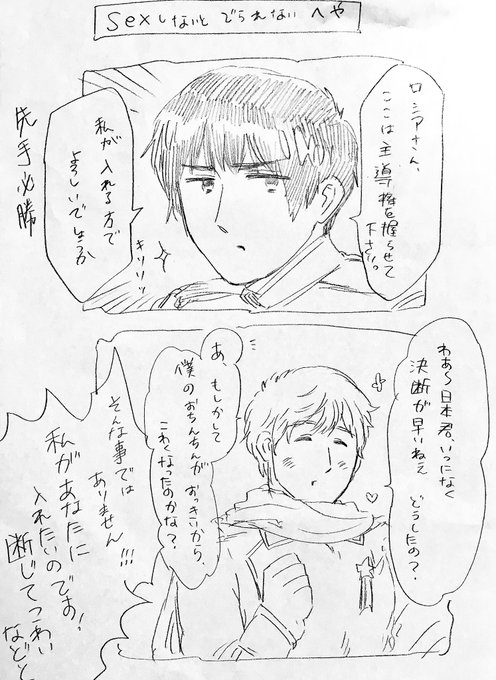 sexしないと でられない へや
ロシアさん、
ここは主導権を握らせて
下さい。
私が入れる方で
よろしいでしょうか
キリリッ
先手必勝
わあ〜日本君、いつになく
決断が早いねえ
どうしたの?
あ、もしかして
僕のおちんちんがおっきいから、
こわくなったのかな?
そんな事では
ありません!!!
私があなたに
入れたいのです!
断じてこわい
などと